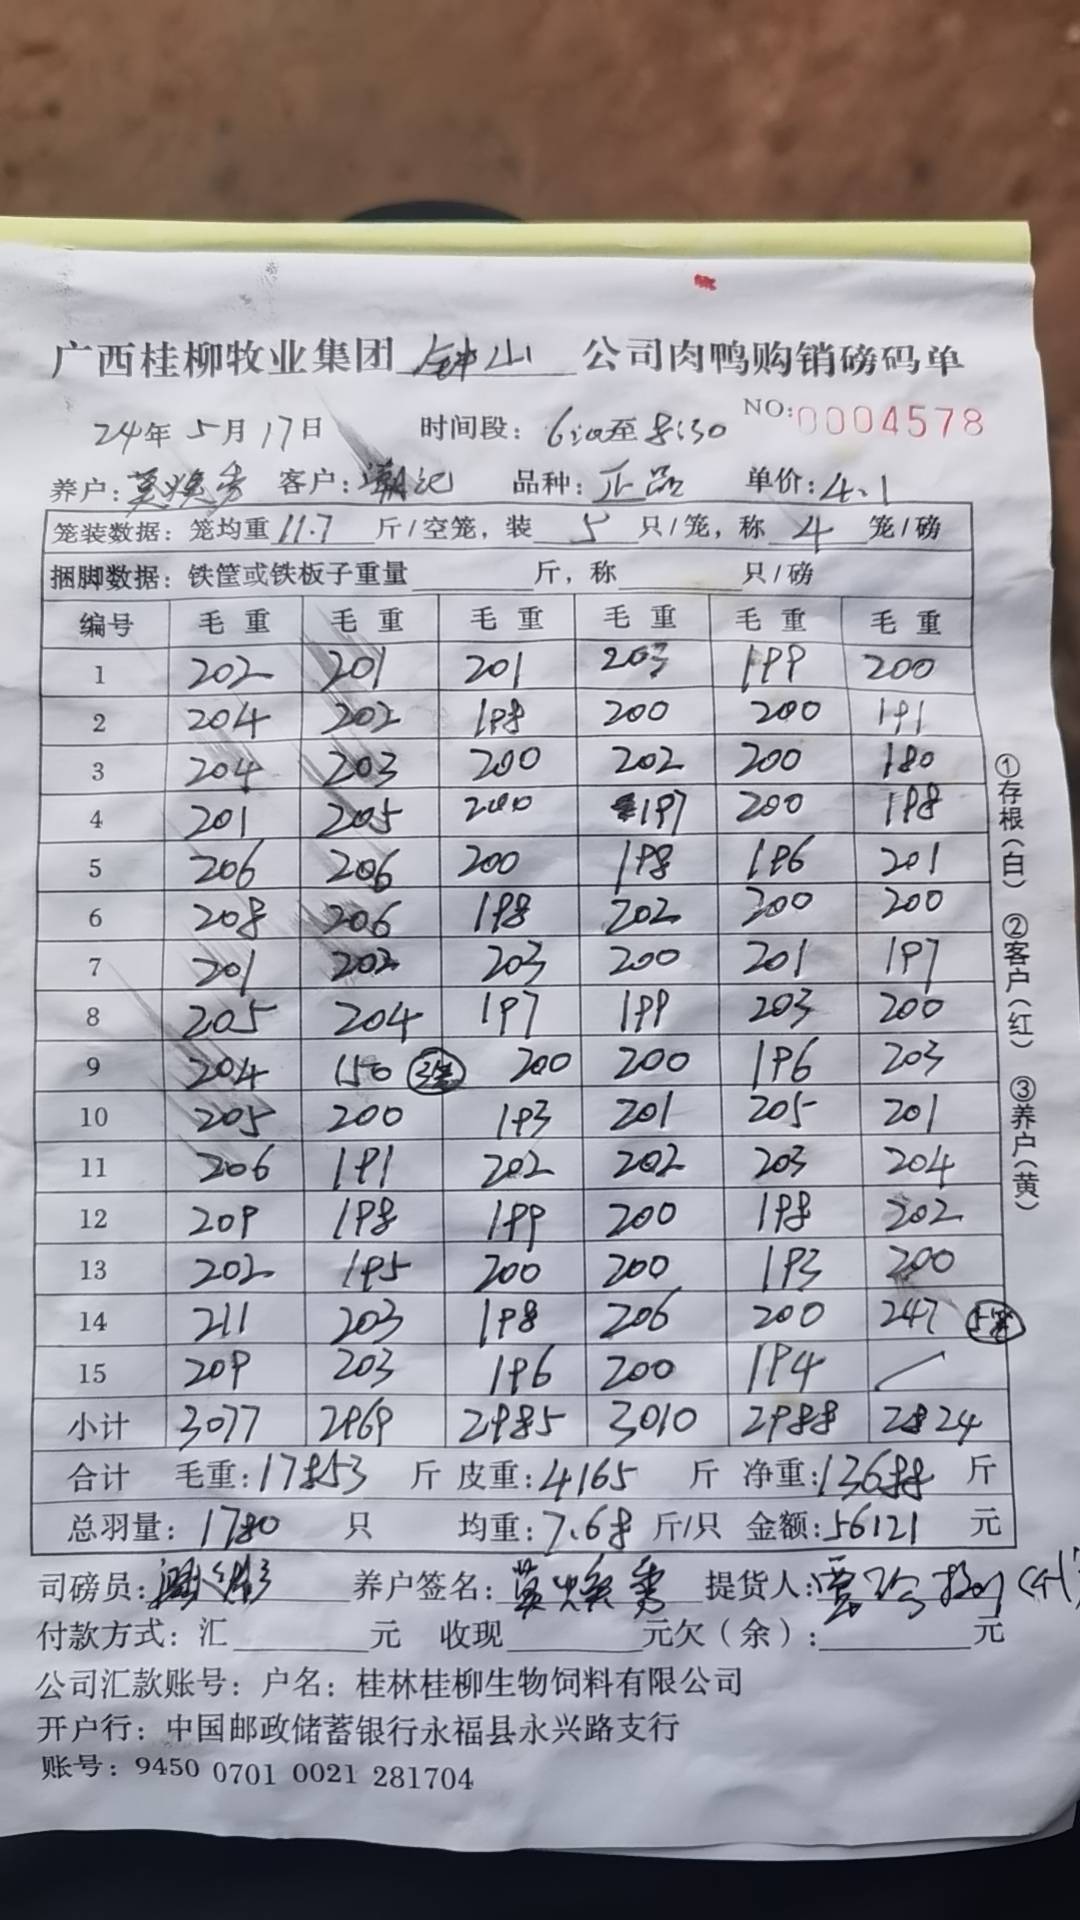 广西桂柳牧业集团 钟山 公司肉鸭购销磅码单
24年 5月 17日 时间段: 6:00至8:30 NO:0004578
养户: 客户:潮记 品种:正品 单价:4.1
笼装数据: 笼均重 11.7 斤/空笼, 装 5 只/笼, 称 4 笼/磅
捆脚数据: 铁筐或铁板子重量 斤, 称 只/磅
编号 毛重 毛重 毛重 毛重 毛重 毛重
1 202 201 201 203 199 200
2 204 202 198 200 200 191
3 204 203 200 202 200 180
4 201 205 200 197 200 198
5 206 206 200 198 196 201
6 208 206 198 202 200 200
7 201 202 203 200 201 197
8 205 204 197 199 203 200
9 204 150 3笼 200 200 196 203
10 205 200 193 201 205 201
11 206 191 202 202 203 204
12 209 198 199 200 198 202
13 202 195 200 200 193 200
14 211 203 198 206 200 247 5笼
15 209 203 196 200 194
小计 3077 2969 2985 3010 2988 2824
合计 毛重:17853 斤 皮重:4165 斤 净重:13688 斤
总羽量: 1780 只 均重:7.68 斤/只 金额:56121 元
司磅员: 养户签名: 提货人:
付款方式: 汇 元 收现 元欠(余): 元
公司汇款账号: 户名: 桂林桂柳生物饲料有限公司
开户行: 中国邮政储蓄银行永福县永兴路支行
账号: 9450 0701 0021 281704
①存根(白) ②客户(红) ③养户(黄)